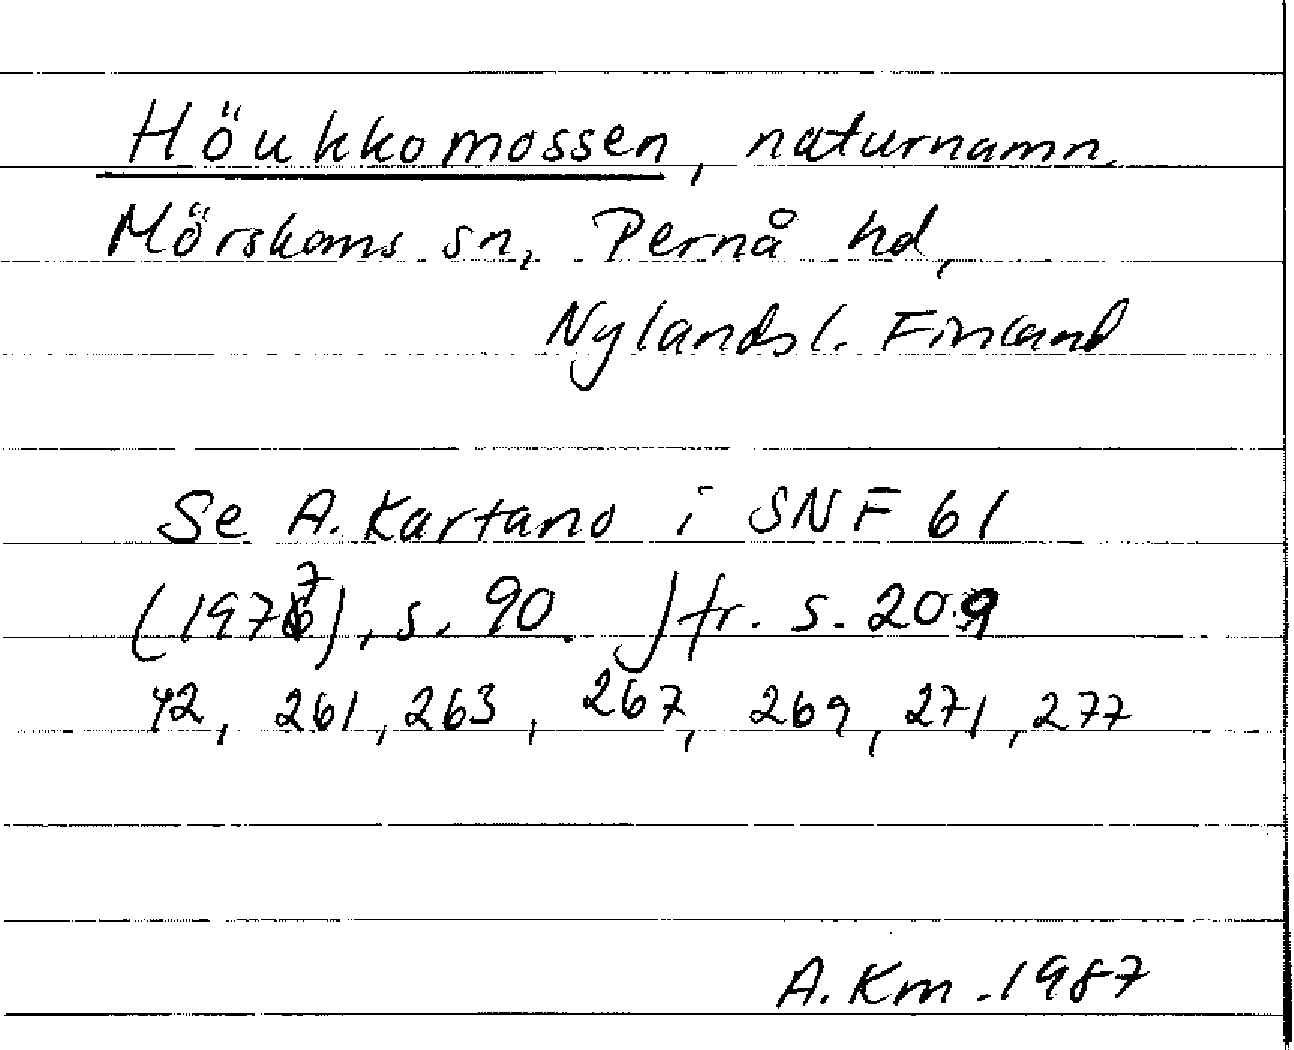 Höukkomossen, naturnamn.
Mörskoms sn, Pernå hd,
Nylandsl. Finland
Se A. Kartano i SNF 61
(1977), s. 90. Jfr. s. 209
42, 261, 263, 267, 269, 271, 277
A. Km. 1987